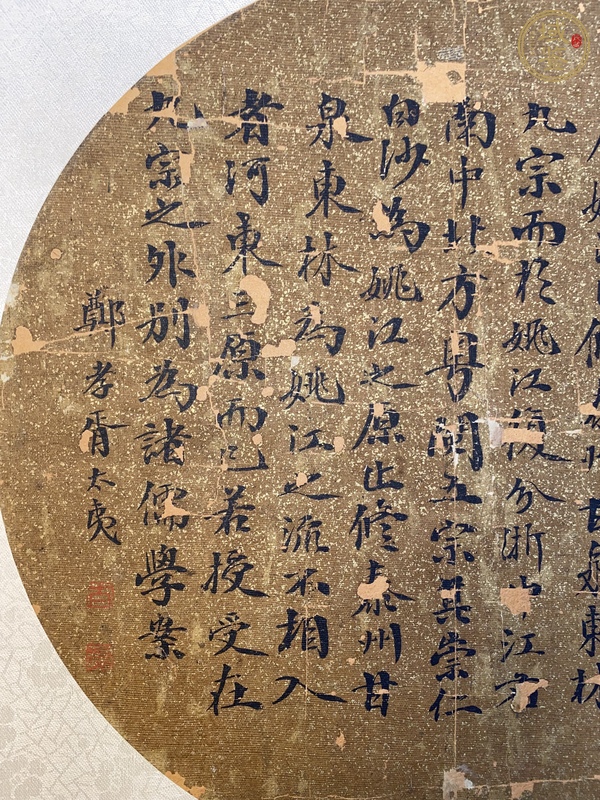 甘泉東林
九宗而於姚江復分浙中江右
南中北方粤閩五宗其崇仁
白沙為姚江之原止修泰州甘
泉東林為姚江之流不相入
者河東三原而已若授受在
九宗之外別為諸儒學案
鄭孝胥太夷